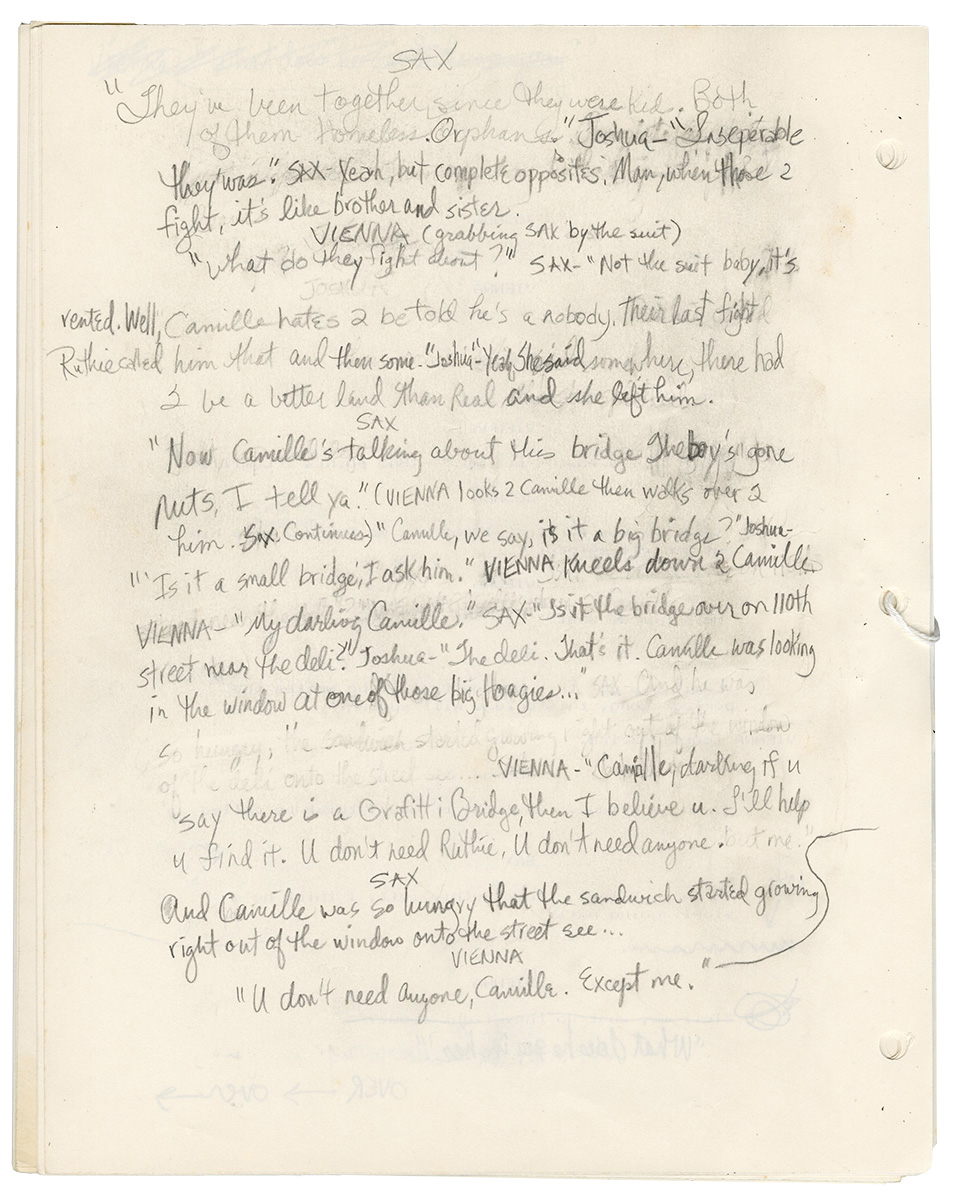 SAX
"They've been together, since they were kid. Both
of them homeless. Orphans." Joshua- "Inseperable
they was." SAX- Yeah, but complete opposites. Man, when those 2
fight, it's like brother and sister.
VIENNA (grabbing SAX by the suit)
"What do they fight about?" SAX- "Not the suit baby, it's
rented. Well, Camille hates 2 be told he's a nobody. Their last fight
Ruthie called him that and then some. "Joshua-" Yeah, She said, somewhere, there had
2 be a better land than Real and she left him.
SAX
"Now Camille's talking about this bridge. The boy's gone
nuts, I tell ya." (VIENNA looks 2 Camille then walks over 2
him. SAX Continues) "Camille, we say, is it a big bridge?" Joshua-
"'Is it a small bridge', I ask him." VIENNA kneels down 2 Camille.
VIENNA- "My darling Camille." SAX- "Is it the bridge over on 110th
street near the deli?" Joshua- "The deli. That's it. Camille was looking
in the window at one of those big Hoagies..." SAX And he was
so hungry, the sandwich started growing right out of the window
of the deli onto the street see...
VIENNA- "Camille, darling if u
say there is a Grafitti Bridge, then I believe u. I'll help
u find it. U don't need Ruthie, U don't need anyone. but me."
SAX
And Camille was so hungry that the sandwich started growing
right out of the window onto the street see...
VIENNA
"U don't need anyone, Camille. Except me."
OVER → OVER →